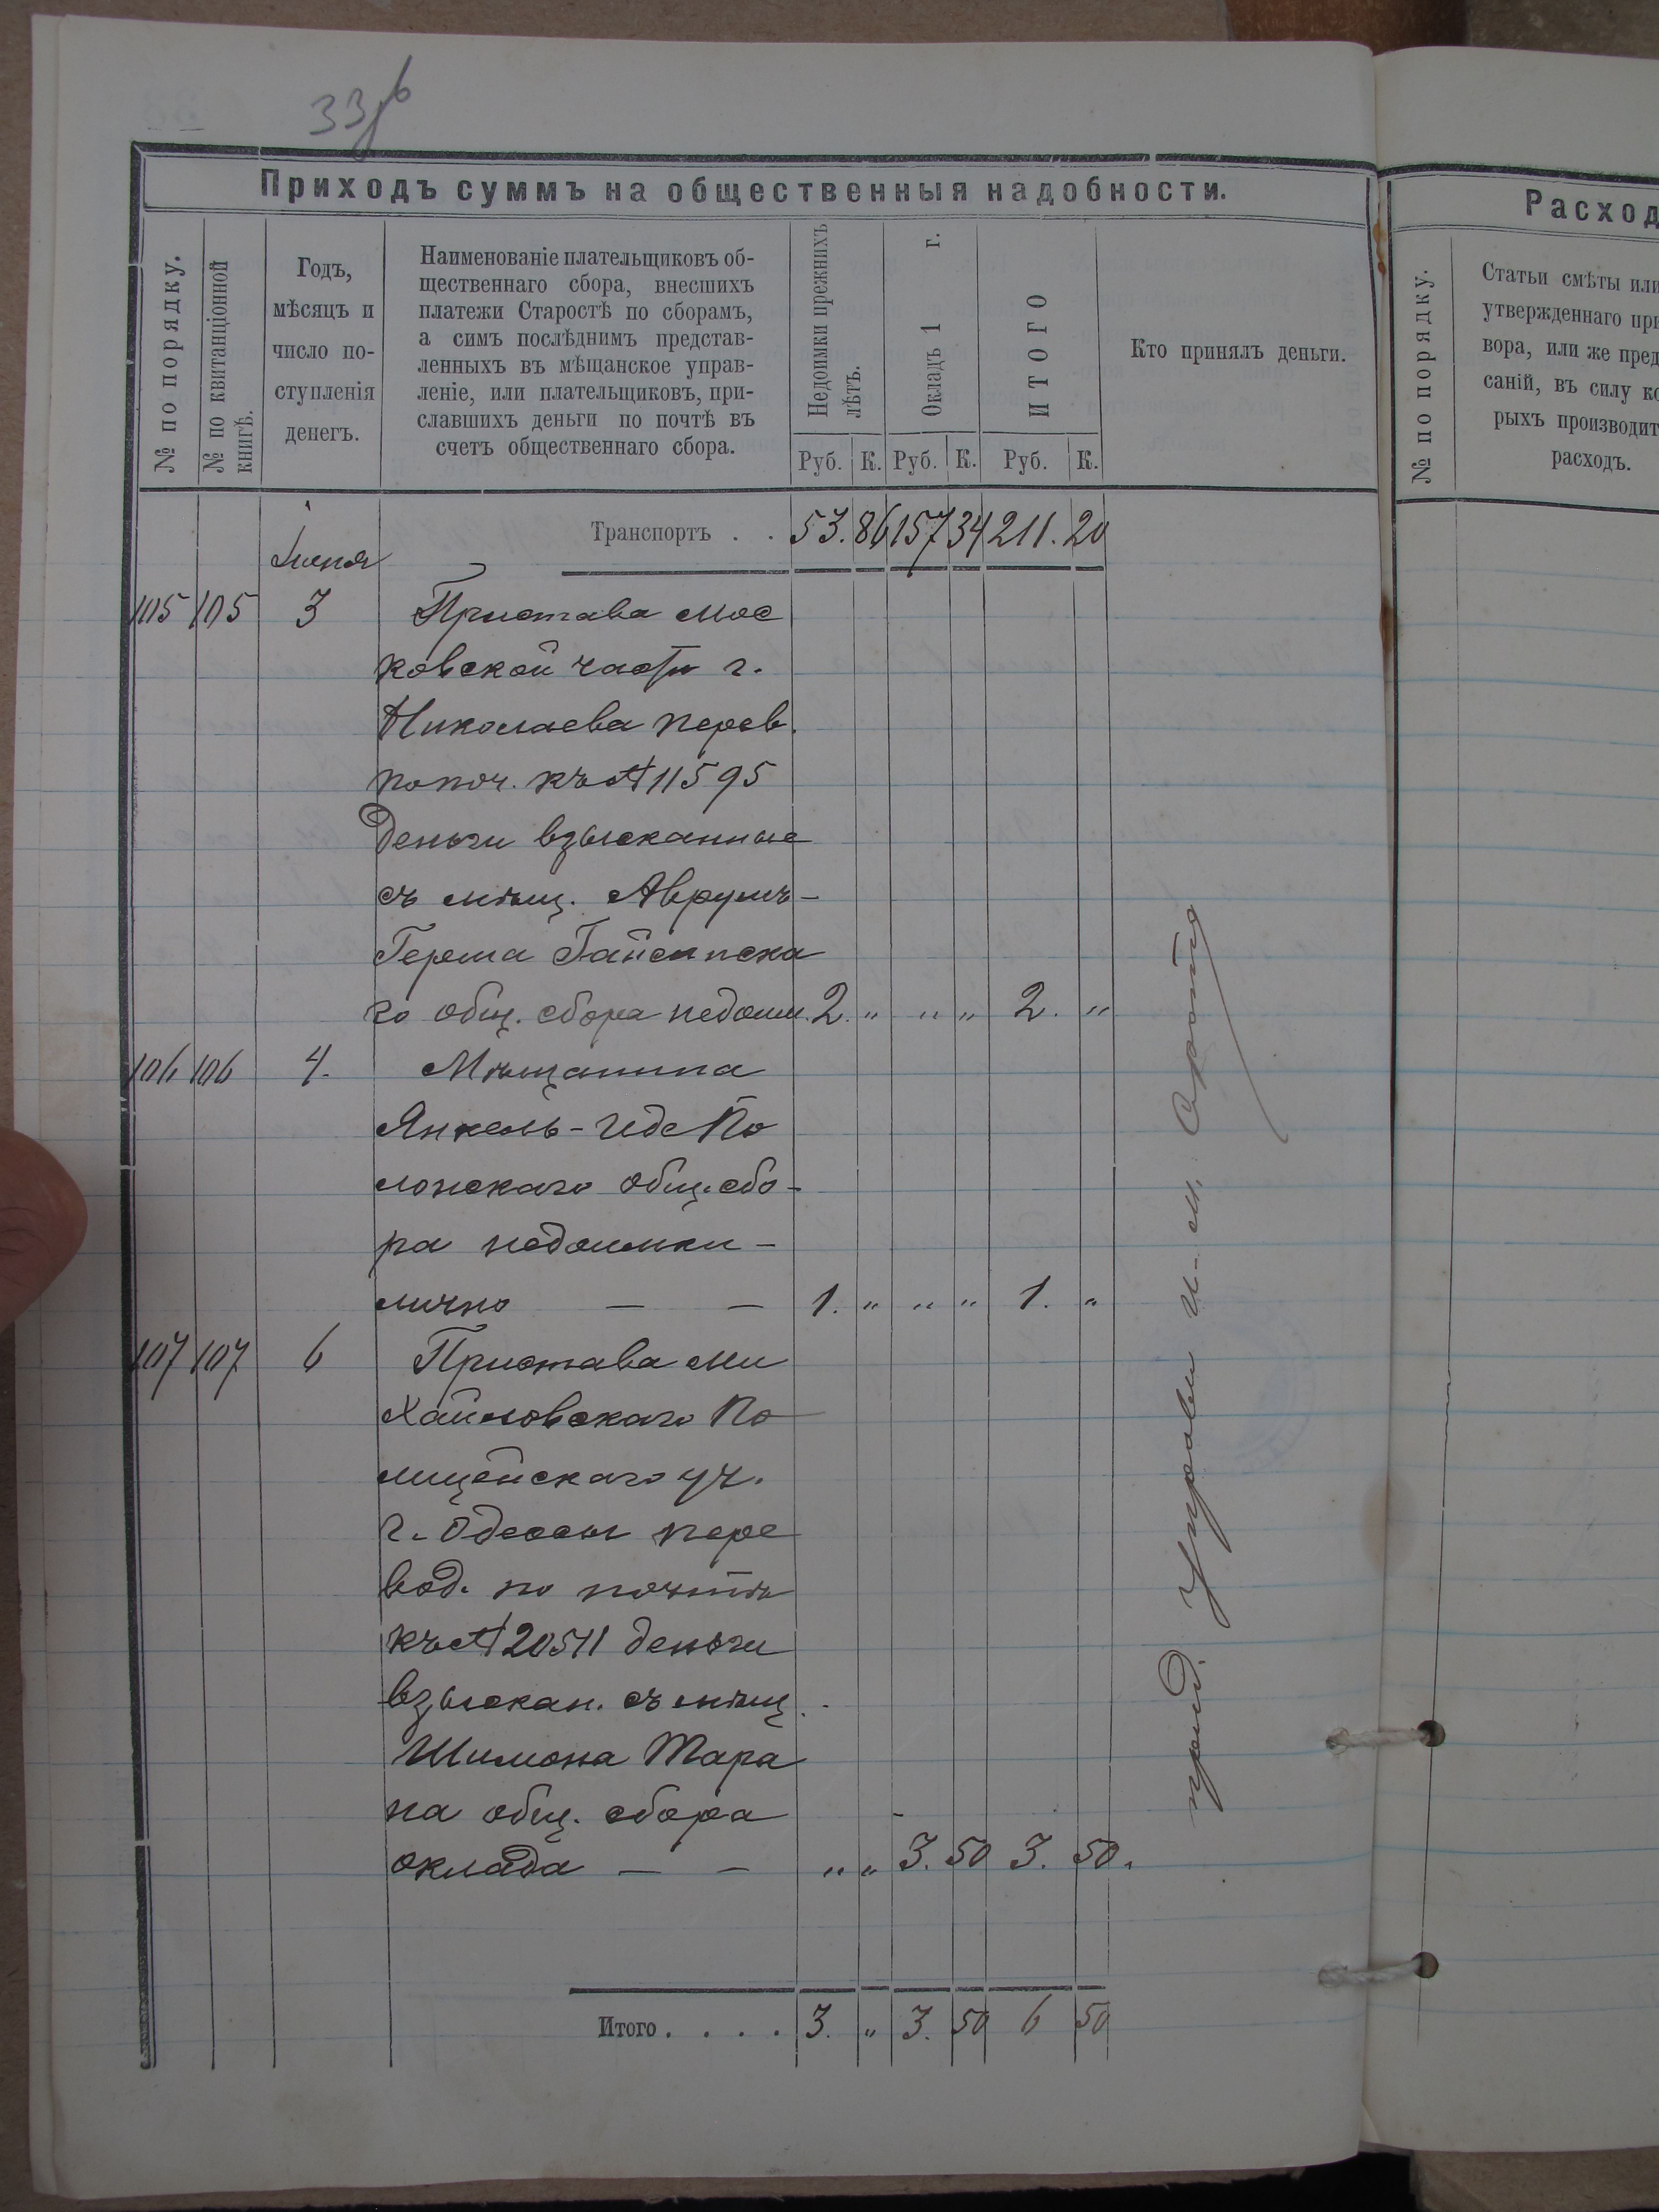 33
Приходъ суммъ на общественныя надобности.
№ по порядку.
№ по квитанціонной
книгѣ.
Годъ,
мѣсяцъ и
число по-
ступленія
денегъ.
Наименованіе плательщиковъ об-
щественнаго сбора, внесшихъ
платежи Старостѣ по сборамъ,
а симъ послѣднимъ представ-
ленныхъ въ мѣщанское управ-
леніе, или плательщиковъ, при-
славшихъ деньги по почтѣ въ
счетъ общественнаго сбора.
Недоимки прежнихъ
лѣтъ.
Окладъ 1 г.
ИТОГО
Кто принялъ деньги.
Руб. К. Руб. К. Руб. К.
Транспортъ . . 53. 86 157 34 211. 20
Июня
105 105 3 Пристава Мос
ковской части г.
Николаева перев.
по поч. къ № 11595
деньги взысканные
съ мѣщ. Аврумъ-
Герша Гайсинска
го общ. сбора недоим. 2. " " " 2. "
106 106 4. Мѣщанина
Янкель-Иде По
лонскаго общ. сбо-
ра недоимки -
лично — — 1. " " " 1. "
107 107 6 Пристава Ми
хайловскаго По
лицейскаго уч.
г. Одессы пере
вод. по почтѣ
къ № 20511 деньги
взыскан. съ мѣщ.
Шимона Тара
на общ. сбора
оклада — — " " 3. 50 3. 50.
Итого . . . . 3. " 3. 50 6 50
Управы
Расход
№ по порядку.
Статьи смѣты или
утвержденнаго при
вора, или же пред
саній, въ силу ко
рыхъ производит
расходъ.